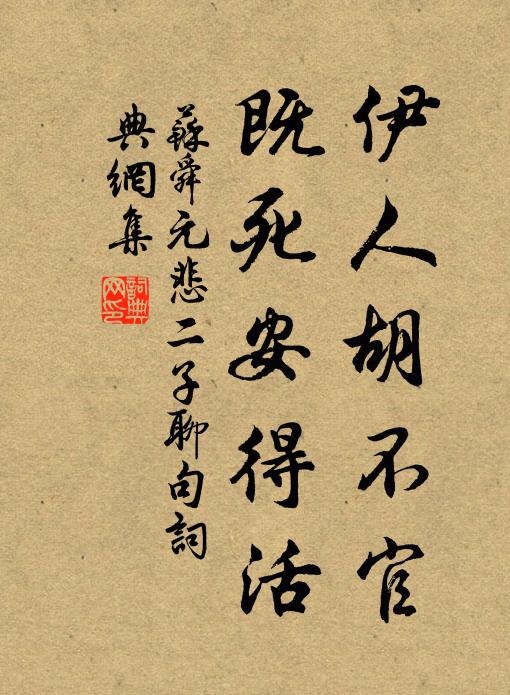 伊人胡不官
既死安得活
蘇舜元悲二子聊句詞
典網集
詞典
网印